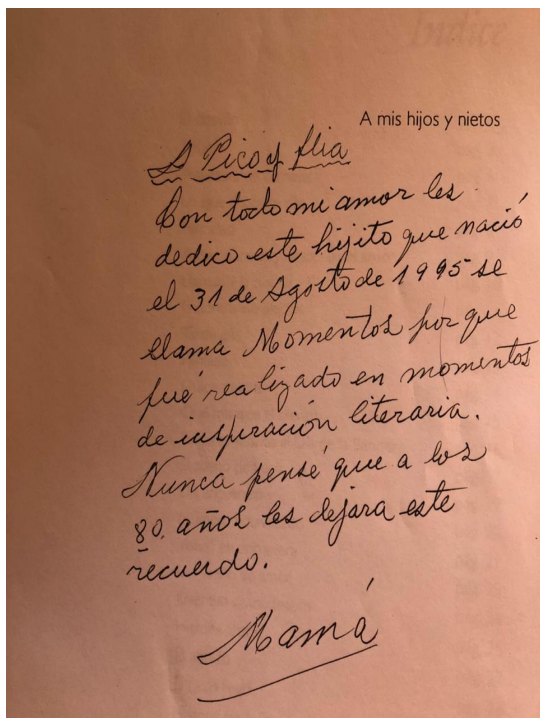 Indice
A mis hijos y nietos
A Pico y flia
Con todo mi amor les
dedico este hijito que nació
el 31 de Agosto de 1995 se
llama Momentos por que
fué realizado en momentos
de inspiración literaria.
Nunca pensé que a los
80 años les dejara este
recuerdo.
Mamá